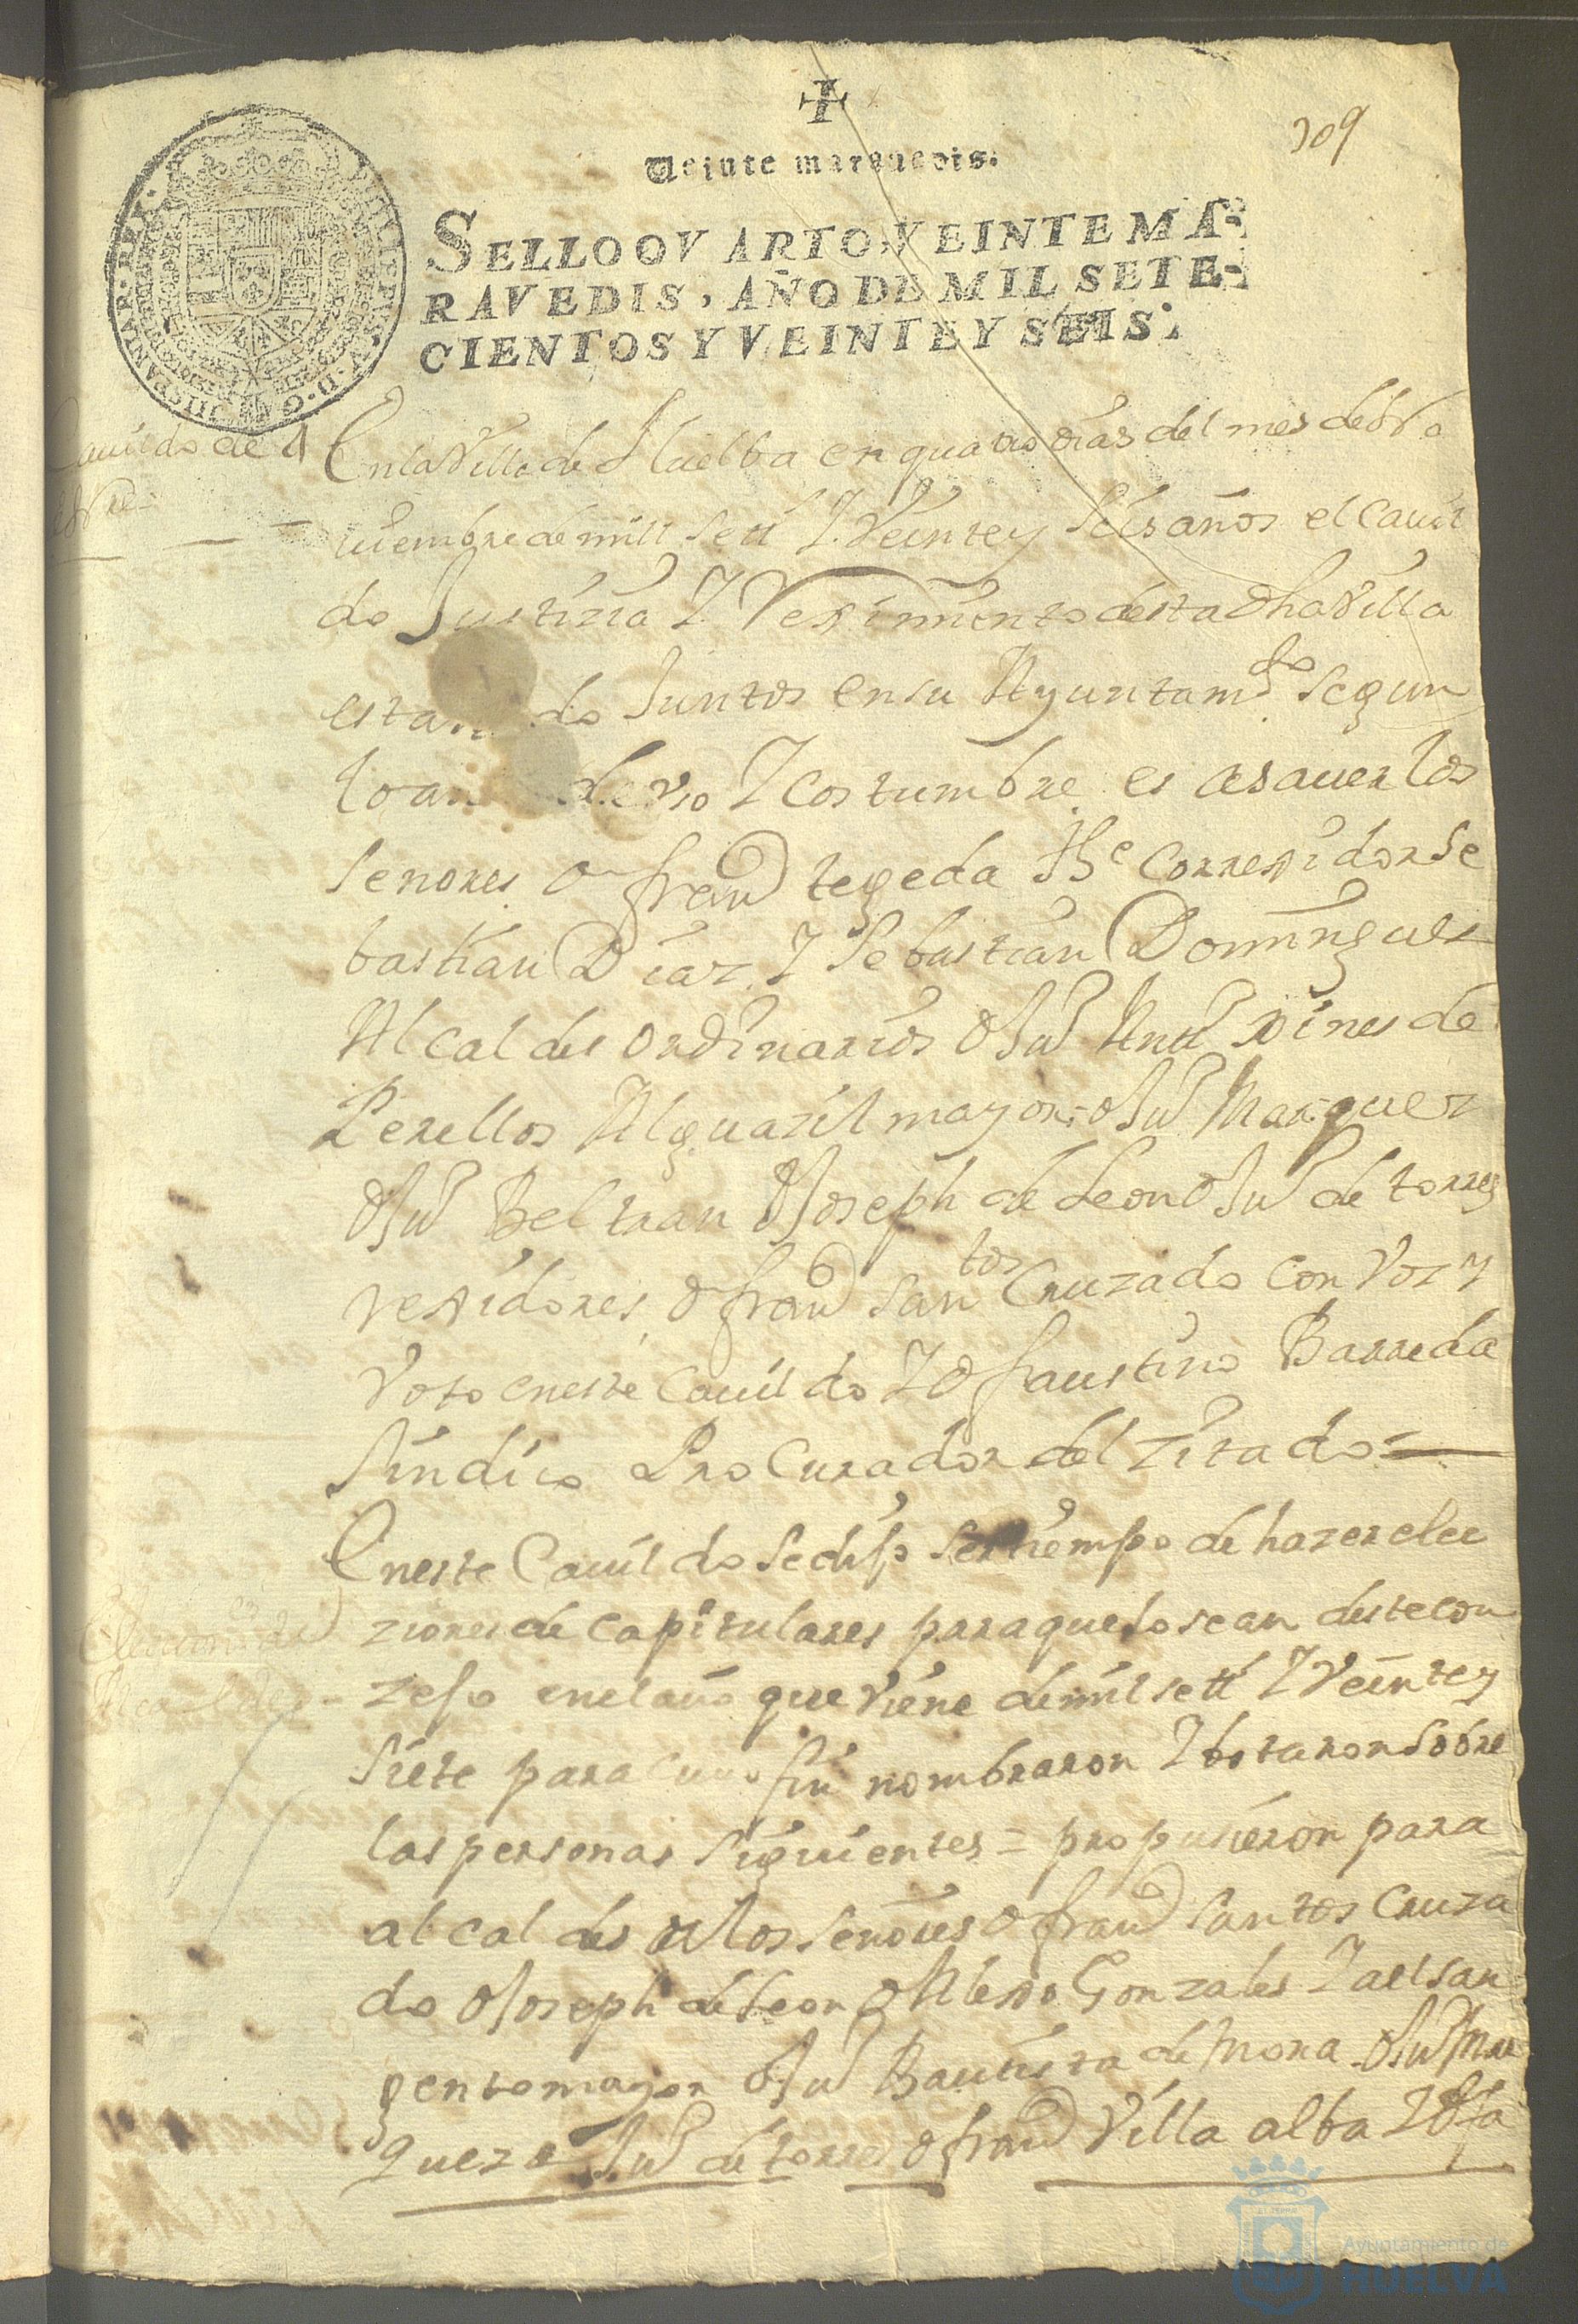 309
Veinte marauedis.
SELLO QVARTO, VEINTE MA-
RAVEDIS, AÑO DE MIL SETE-
CIENTOS Y VEINTE Y SEIS.
Cauildo de 4
En la Villa de Huelba en quatro dias del mes de
uiembre de mill sett.s Y Veinte y seis años el Cauil
do Justizia Y Reximiento desta dha Villa
estando Juntos en su Ayuntam.to segun
lo an de vso Y costumbre es asauer los
señores D fran.co tegeda The Correxidor Se
bastian Diaz Y Sebastian Dominguez
Alcaldes ordinarios D Ju.o Antt.o xines de
Perellos Alguazil mayor D Ju.o Marquez
D Ju.o Beltran D Joseph de Leon D Ju.o de torres
rexidores, D fran.co Santos Cruzado con Voz y
Voto en este Cauildo Y D faustino Barreda
Sindico Procurador del Zitado =
En este Cauildo se dijo ser tiempo de hazer elec
ziones de capitulares para que lo sean deste con
zejo en el año que viene de mil sett.s Y Veinte y
siete para cuio fin nombraron Y botaron sobre
las personas siguientes = propusieron para
alcaldes a los señores D fran.co Santos Cruza
do D Joseph de Leon D Alexo Gonzales Y al sar
gento mayor D Ju.o Bautista de Mora D Ju.o Mar
quez D Ju.o de torres D fran.co Villa alba Y D
Elecciones de
Alcaldes
Ayuntamiento de
HUELVA